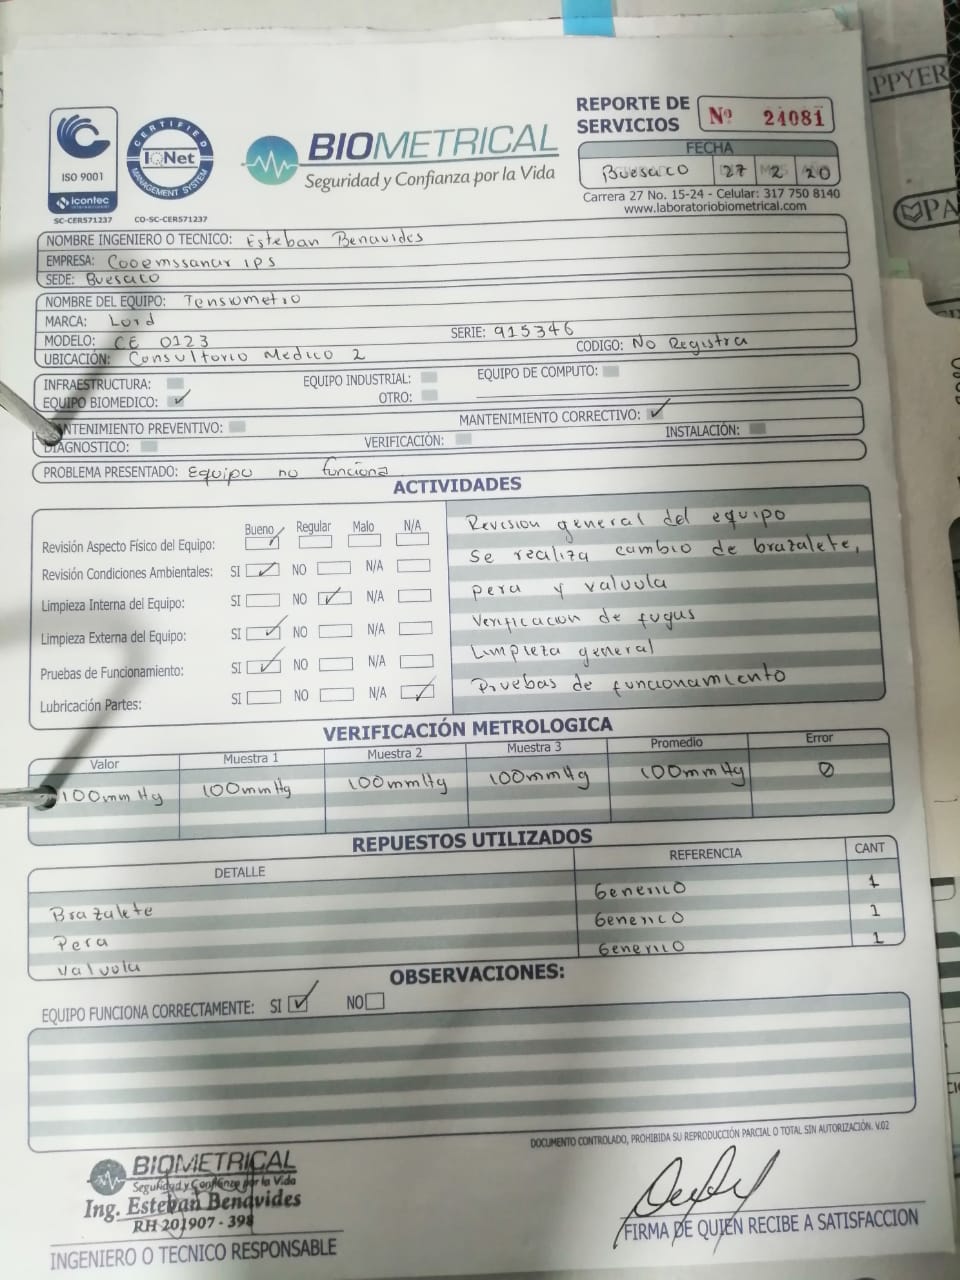 REPORTE DE SERVICIOS
Nº 24081
ISO 9001
icontec
SC-CER571237
CERTIFIED
IQNet
MANAGEMENT SYSTEM
CO-SC-CER571237
BIOMETRICAL
Seguridad y Confianza por la Vida
FECHA
Buesaco 27 2 20
Carrera 27 No. 15-24 - Celular: 317 750 8140
www.laboratoriobiometrical.com
NOMBRE INGENIERO O TECNICO: Esteban Benavides
EMPRESA: Cooemssanar ips
SEDE: Buesaco
NOMBRE DEL EQUIPO: Tensiometro
MARCA: Lord
MODELO: CE 0123 SERIE: 915346
UBICACIÓN: Consultorio Medico 2 CODIGO: No Registra
INFRAESTRUCTURA: EQUIPO INDUSTRIAL: EQUIPO DE COMPUTO:
EQUIPO BIOMEDICO: ✓ OTRO:
MANTENIMIENTO PREVENTIVO: MANTENIMIENTO CORRECTIVO: ✓
DIAGNOSTICO: VERIFICACIÓN: INSTALACIÓN:
PROBLEMA PRESENTADO: Equipo no funciona
ACTIVIDADES
Bueno Regular Malo N/A
Revisión Aspecto Físico del Equipo: ✓
Revisión Condiciones Ambientales: SI ✓ NO N/A
Limpieza Interna del Equipo: SI NO ✓ N/A
Limpieza Externa del Equipo: SI ✓ NO N/A
Pruebas de Funcionamiento: SI ✓ NO N/A
Lubricación Partes: SI NO N/A ✓
Revision general del equipo
Se realiza cambio de brazalete,
pera y valvula
Verificacion de fugas
Limpieza general
Pruebas de funcionamiento
VERIFICACIÓN METROLOGICA
Valor Muestra 1 Muestra 2 Muestra 3 Promedio Error
100mmHg 100mmHg 100mmHg 100mmHg 100mmHg 0
REPUESTOS UTILIZADOS
DETALLE REFERENCIA CANT
Brazalete Generico 1
Pera Generico 1
Valvula Generico 1
OBSERVACIONES:
EQUIPO FUNCIONA CORRECTAMENTE: SI ✓ NO
DOCUMENTO CONTROLADO, PROHIBIDA SU REPRODUCCIÓN PARCIAL O TOTAL SIN AUTORIZACIÓN. V.02
BIOMETRICAL
Seguridad y Confianza por la Vida
Ing. Esteban Benavides
RH 201907 - 398
INGENIERO O TECNICO RESPONSABLE
FIRMA DE QUIEN RECIBE A SATISFACCION